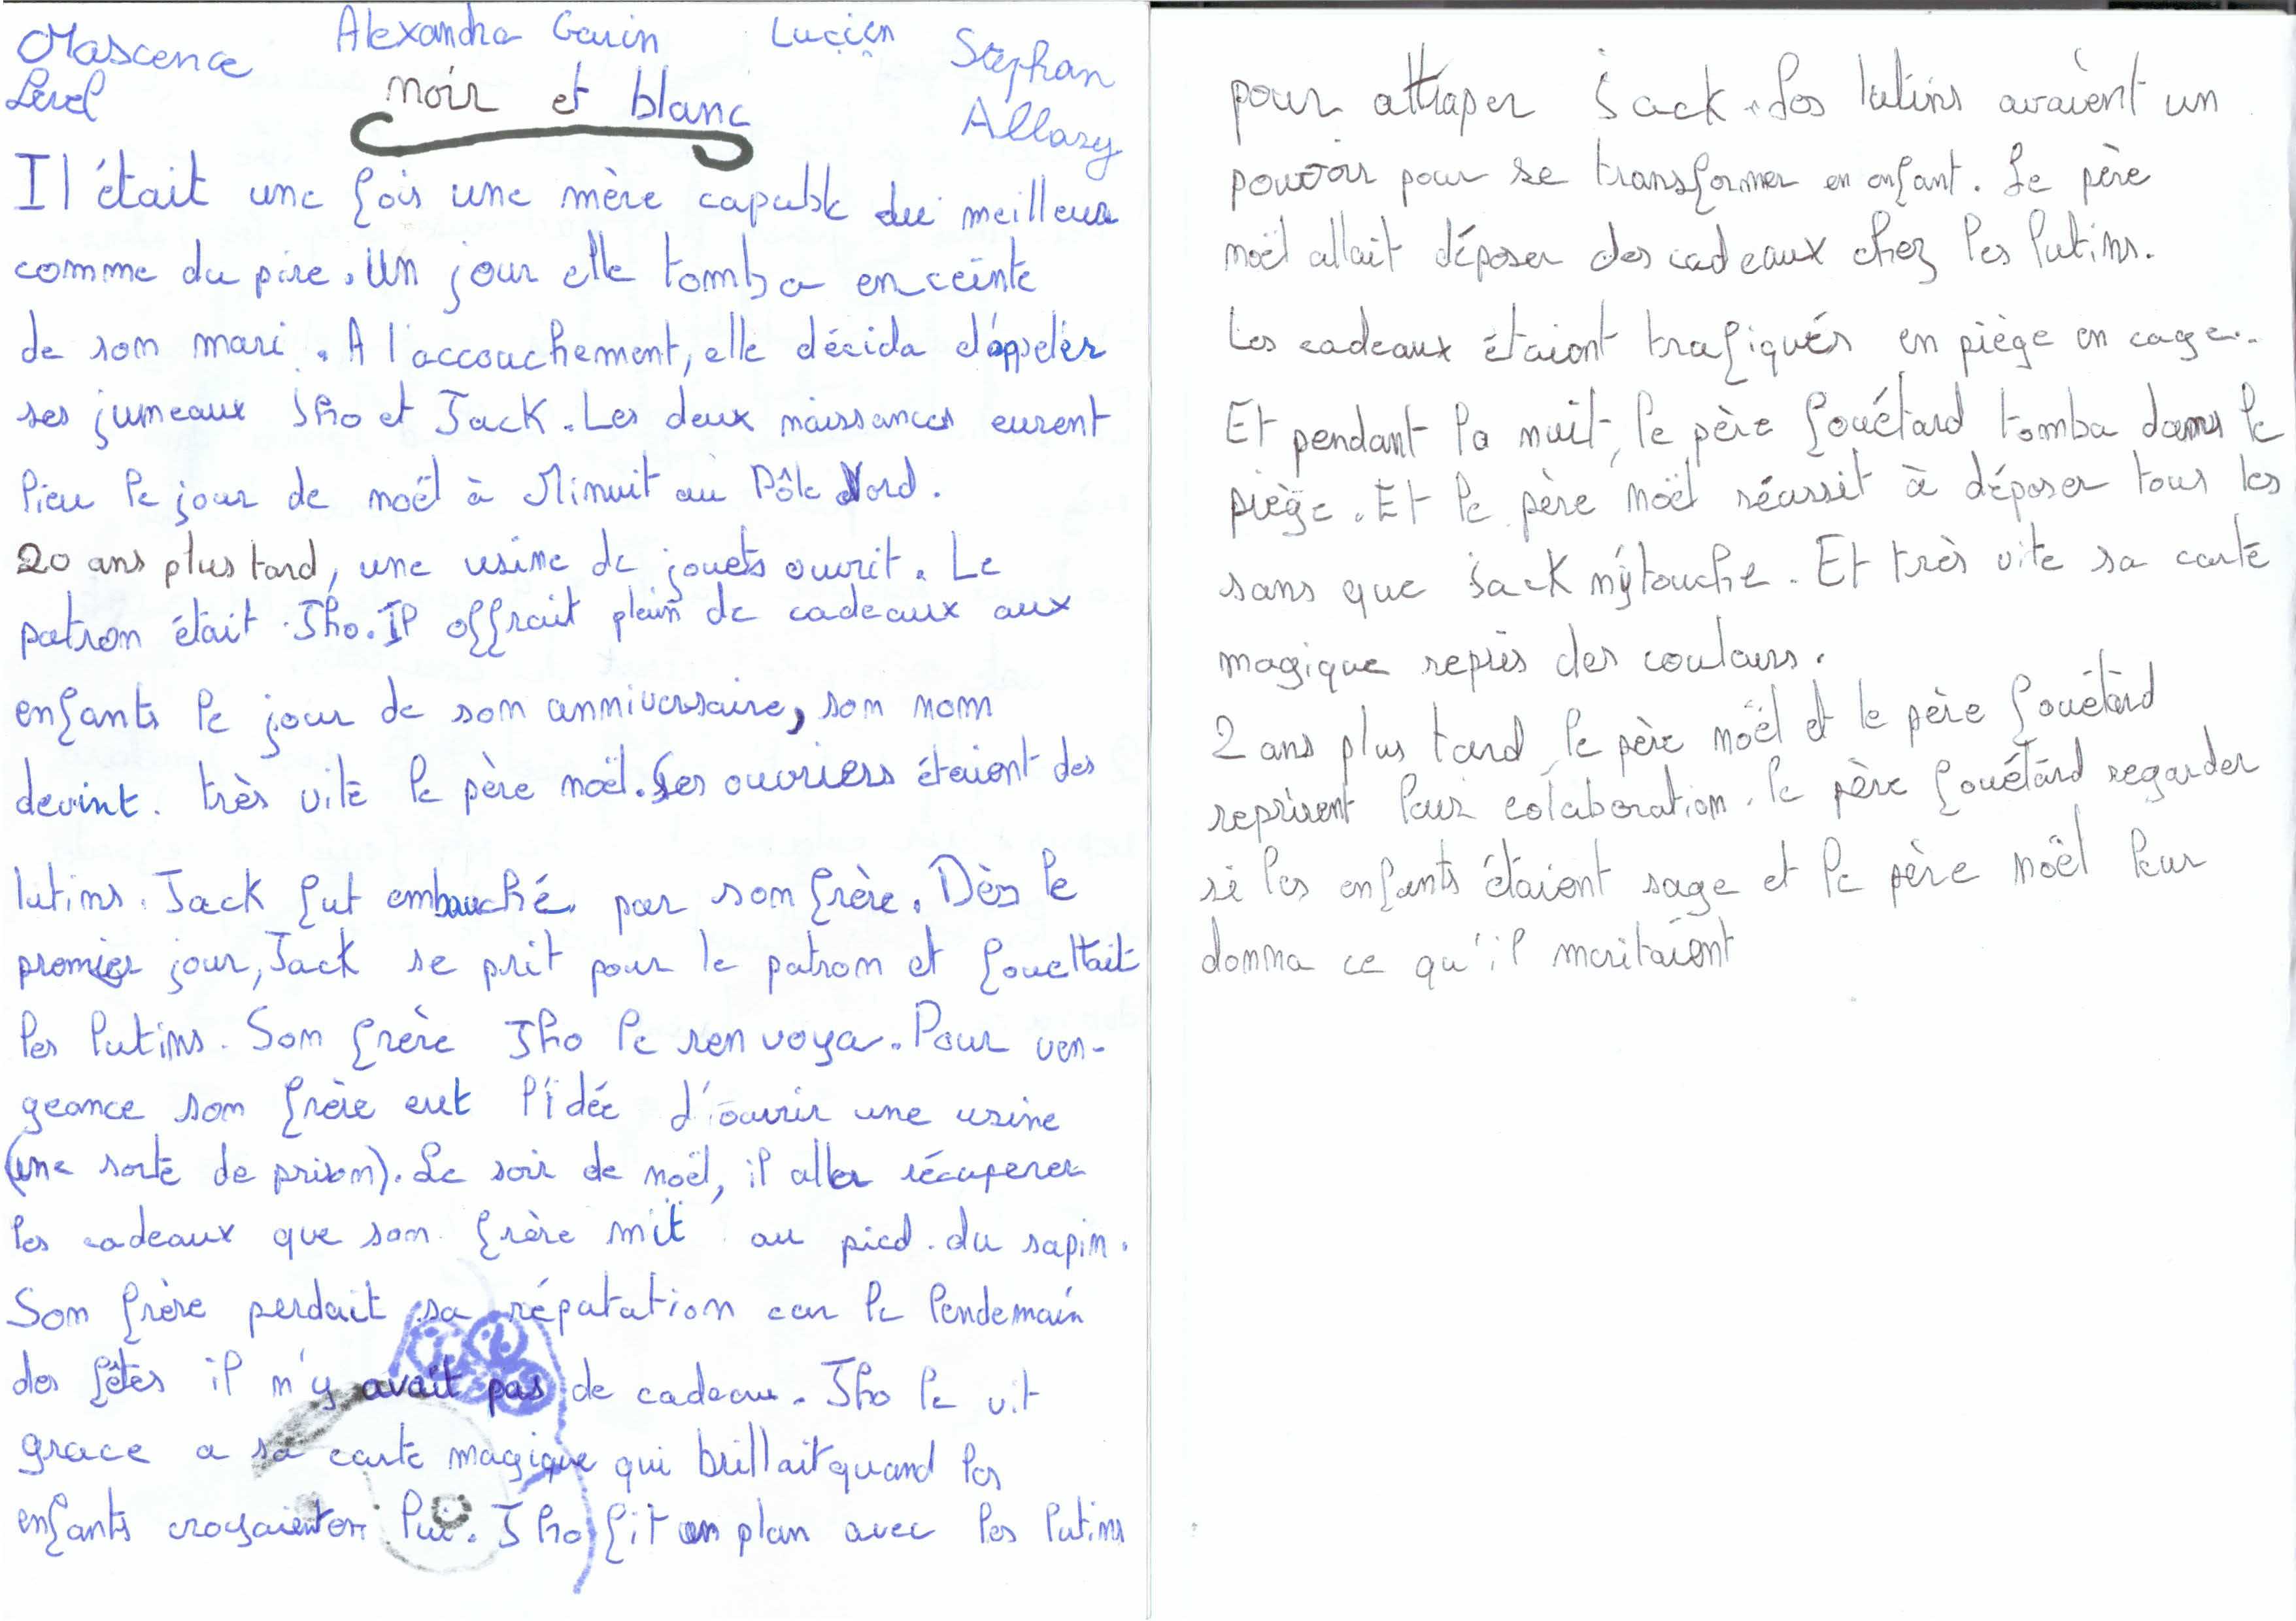 Alexandra Garin Lucien Stephan
Mascence
Level
noir et blanc
Allary
Il était une fois une mère capable du meilleur
comme du pire. Un jour elle tomba enceinte
de son mari. A l'accouchement, elle décida d'appeler
ses jumeaux Jho et Jack. Les deux naissances eurent
lieu le jour de noël à Minuit au Pôle Nord.
20 ans plus tard, une usine de jouets ouvrit. Le
patron était Jho. Il offrait plein de cadeaux aux
enfants le jour de son anniversaire, son nom
devint. très vite le père noël. Ses ouvriers étaient des
lutins. Jack fut embauché par son frère. Dès le
premier jour, Jack se prit pour le patron et fouettait
les lutins. Son frère Jho le renvoya. Pour ven-
geance son frère eut l'idée d'ouvrir une usine
(une sorte de prison). Le soir de noël, il aller récuperer
les cadeaux que son frère mit au pied du sapin.
Son frère perdait sa réputation car le lendemain
des fêtes il n'y avait pas de cadeau. Jho le vit
grace a sa carte magique qui brillait quand les
enfants croyaient en lui. Jho fit un plan avec les lutins
pour attraper Jack. Les lutins avaient un
pouvoir pour se transformer en enfant. Le père
noël allait déposer des cadeaux chez les lutins.
Les cadeaux étaient trafiqués en piège en cage.
Et pendant la nuit, le père fouétard tomba dans le
piège. Et le père noël réussit à déposer tous les
sans que Jack n'y touche. Et très vite sa carte
magique repris des couleurs.
2 ans plus tard, le père noël et le père fouétard
reprirent leur colaboration. le père fouétard regarder
si les enfants étaient sage et le père noël leur
donna ce qu'il meritaient